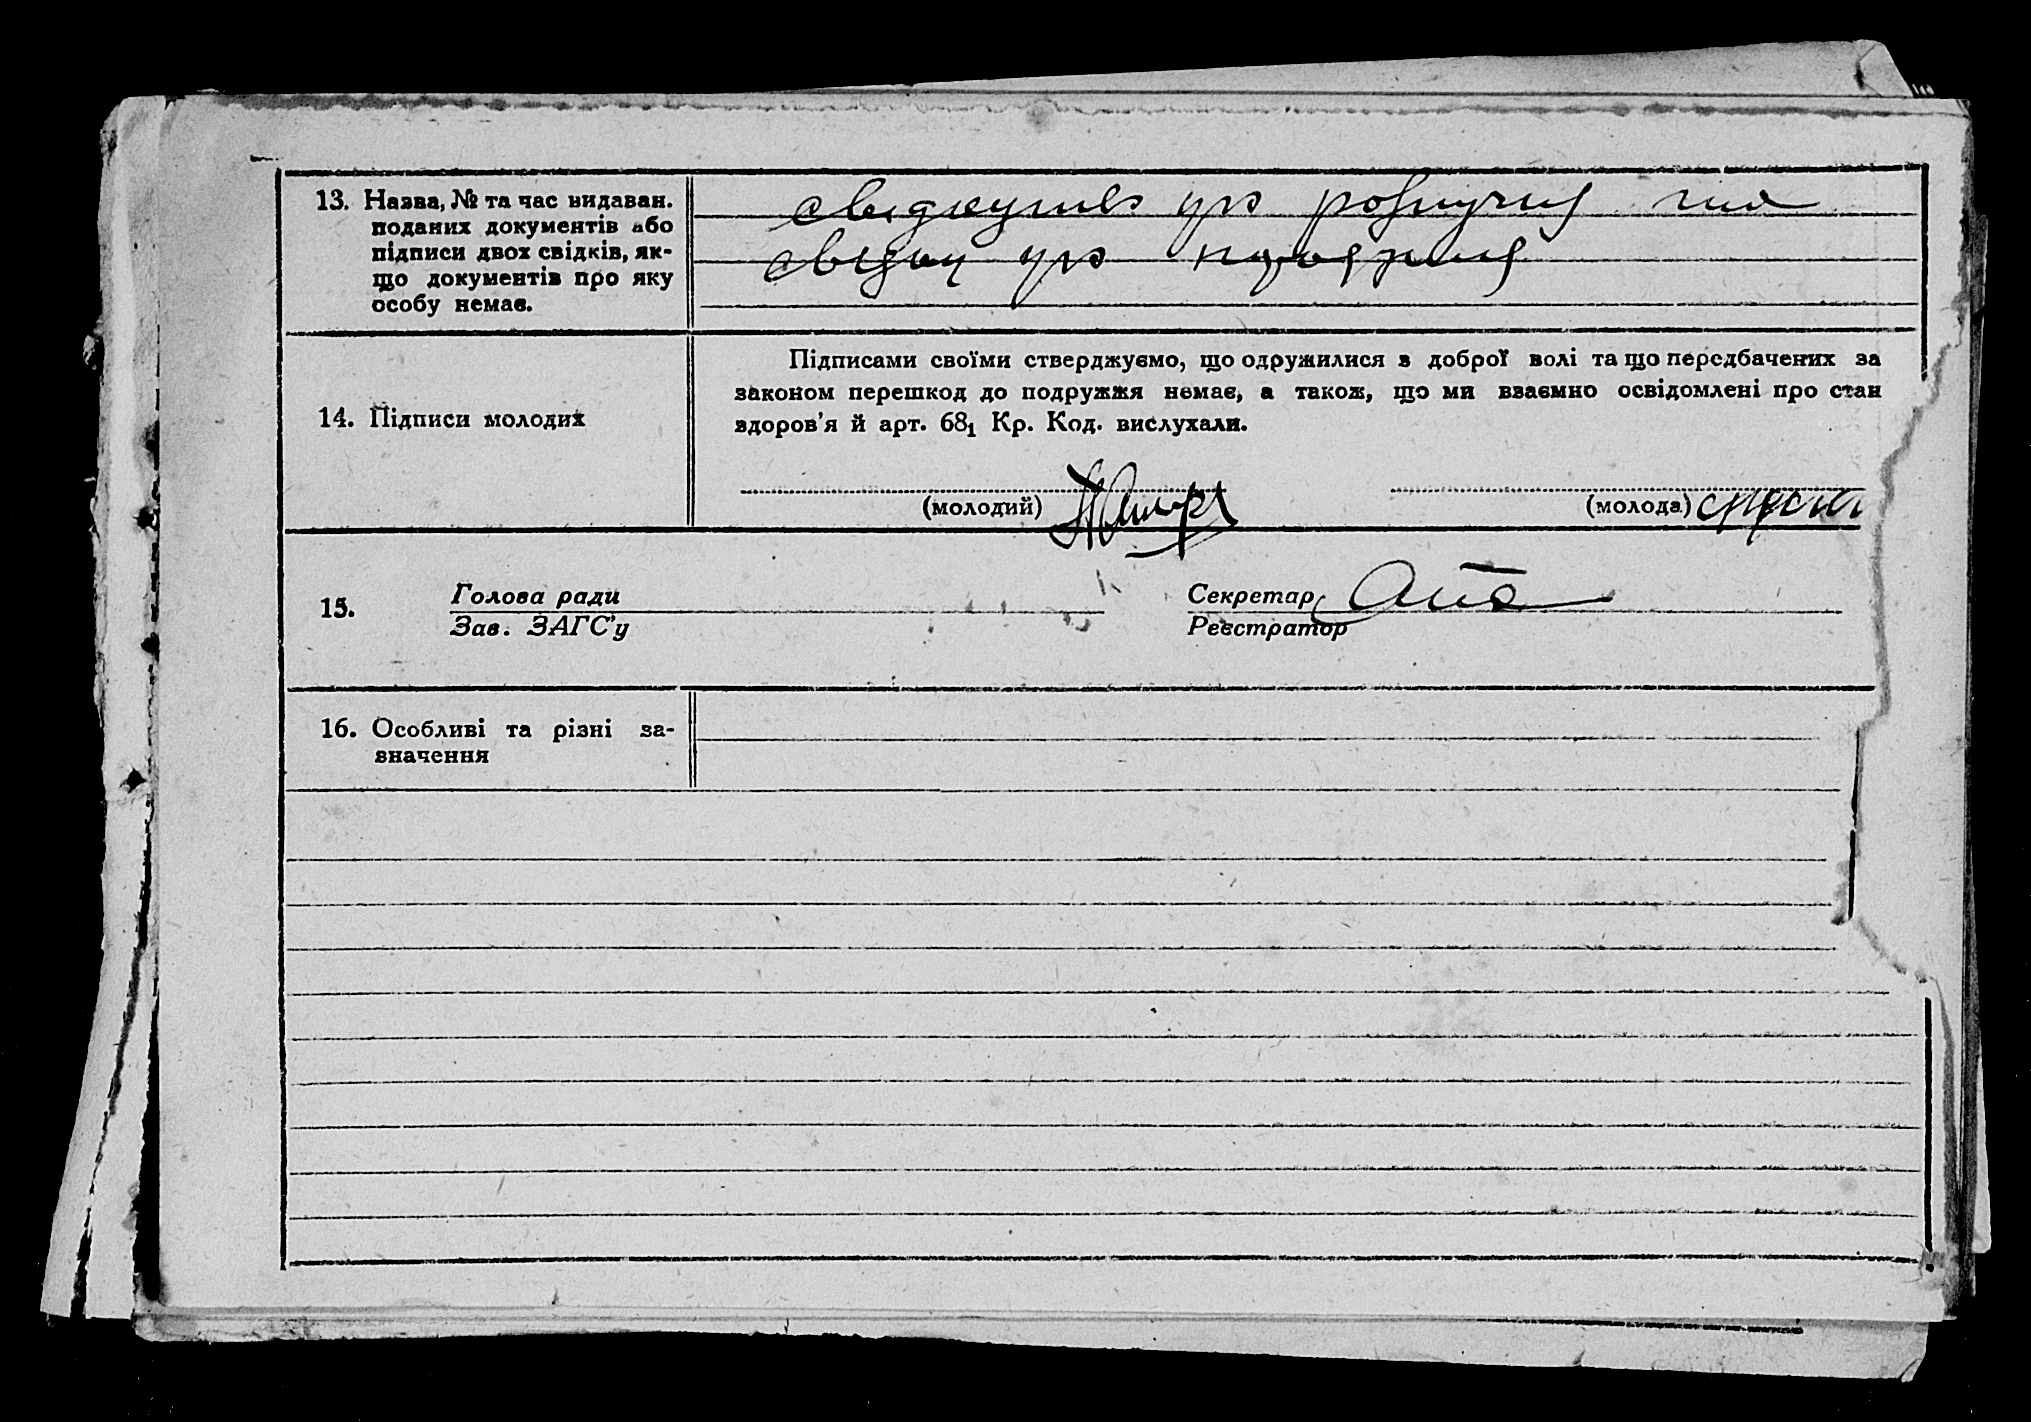 13. Назва, № та час видаван.
поданих документів або
підписи двох свідків, як-
що документів про яку
особу немає.
про
про
Підписами своїми стверджуємо, що одружилися з доброї волі та що передбачених за
законом перешкод до подружжя немає, а також, що ми взаємно освідомлені про стан
здоров'я й арт. 68₁ Кр. Код. вислухали.
14. Підписи молодих
(молодий) (молода)
15. Голова ради Секретар
Зав. ЗАГС'у Реєстратор
16. Особливі та різні за-
значення